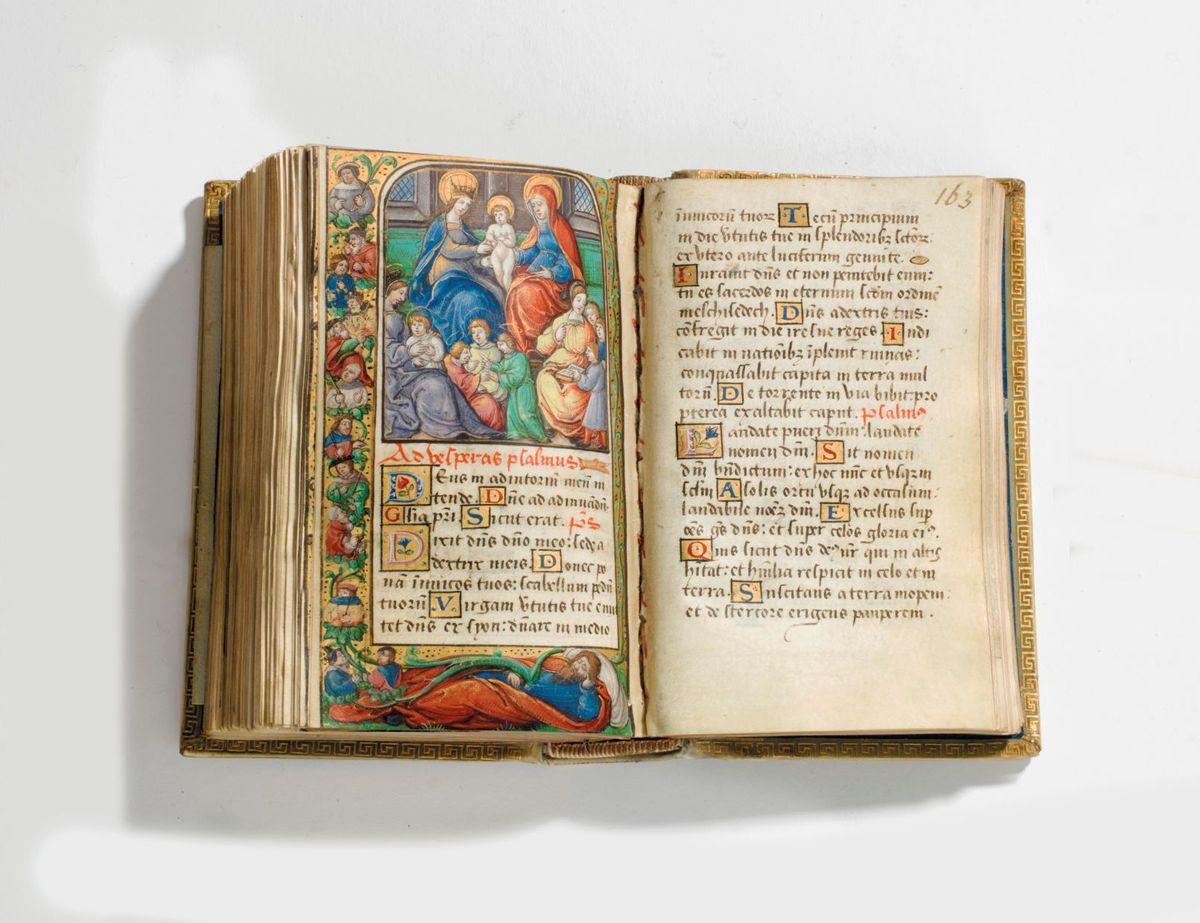 Ad vesperas psalmus
Deus in adiutoriū meū in
tende. Dn̄e ad adiuuādū
Gl̄ia pr̄i Sicut erat. p̄s
Dixit dn̄s dn̄o meo: sede a
dextris meis. Donec po
nā inimicos tuos: scabellum pedū
tuorū Virgam v̄tutis tue emit
tet dn̄s ex syon: dn̄are in medio
163
inimicorū tuorꝝ Tecū principium
in die v̄tutis tue in splendoribꝫ sctōꝝ:
ex vtero ante luciferum genui te.
Iurauit dn̄s et non penitebit eum:
tu es sacerdos in eternum scd̄m ordinē
melchisedech. Dn̄s a dextris tuis:
cōfregit in die ire sue reges. Iudi
cabit in nationibꝫ īplebit ruinas:
conquassabit capita in terra mul
torū. De torrente in via bibit: pro
pterea exaltabit caput. psalmus
Laudate pueri dn̄m: laudate
nomen dn̄i. Sit nomen
dn̄i bn̄dictum: ex hoc nūc et vsqꝫ in
sclm̄ A solis ortu vsqꝫ ad occasum:
laudabile nomē dn̄i. Excelsus sup̄
oēs gē̄s dn̄s: et super celos gloria eiꝰ.
Quis sicut dn̄s deꝰ nr̄ qui in altis
h̄itat: et hūilia respicit in celo et in
terra. Suscitans a terra inopem:
et de stercore erigens pauperem.